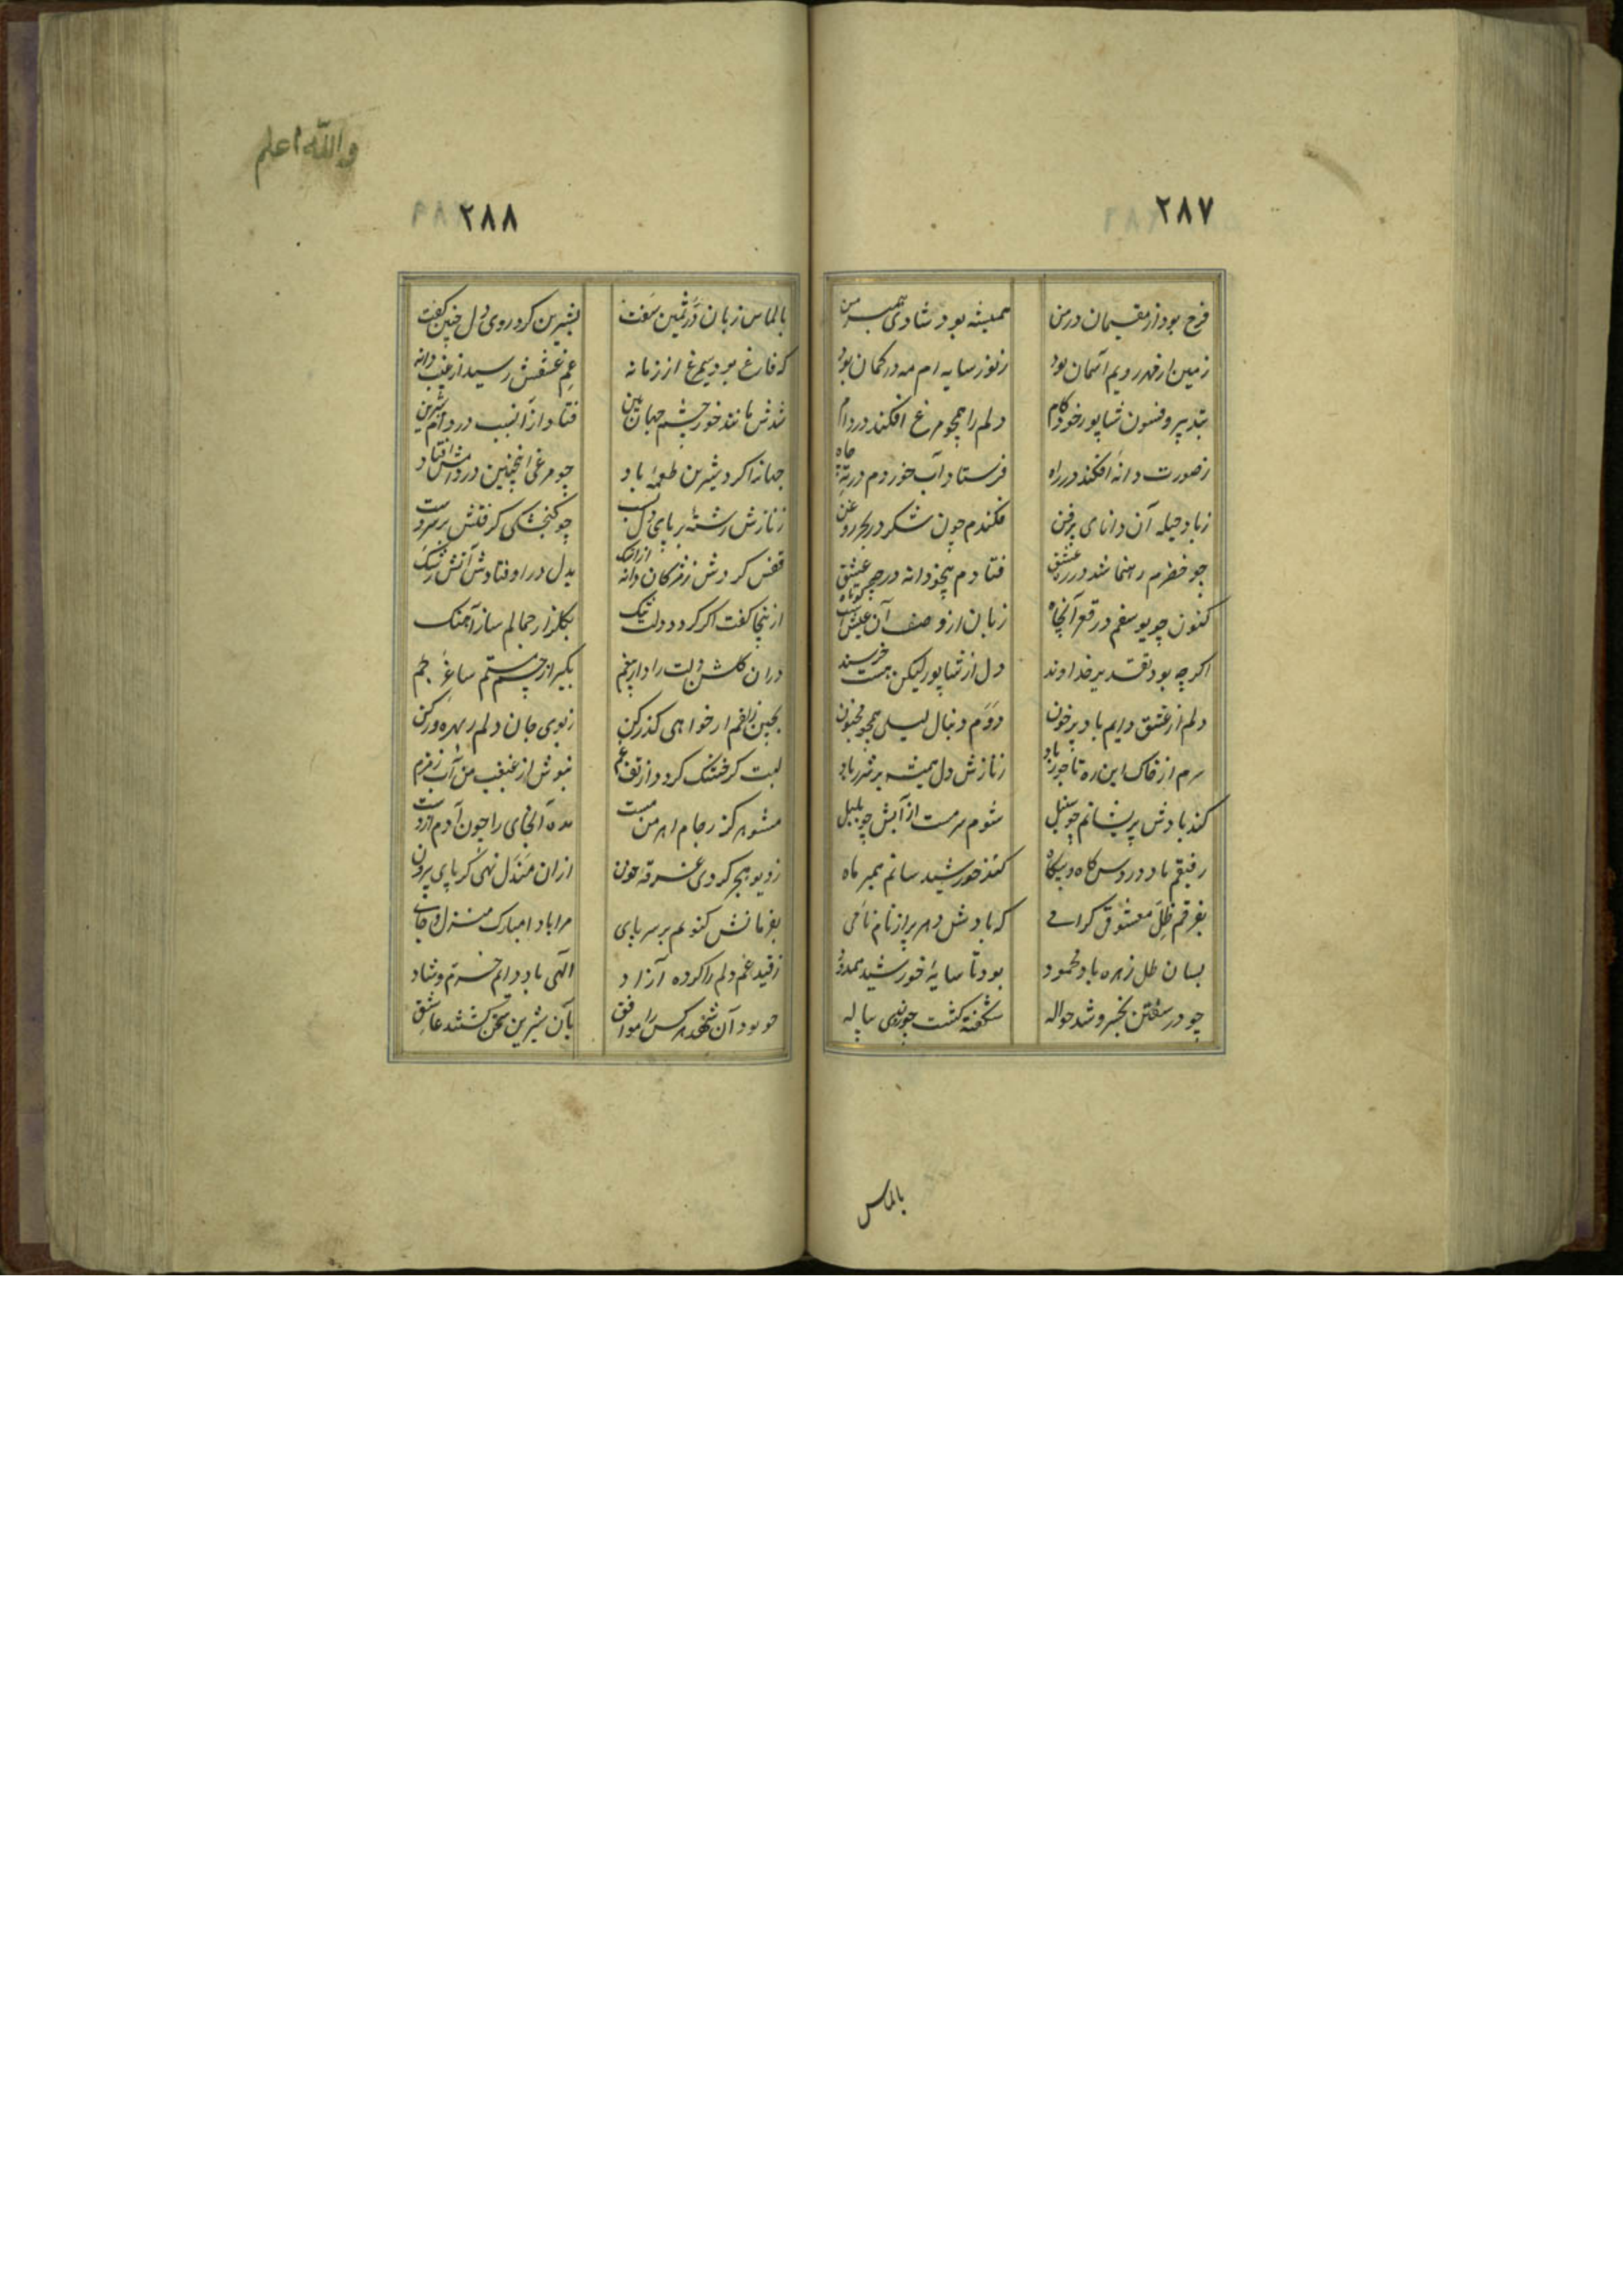 ۲۸۷
فرح بود از مقیمان در من همیشه بود شادی همسر من
زمین از قدر رویم آسمان بود ز نور سایه ام مه در کمان بود
بتدبیر و فسون شاپور خودکام دلم را همچو مرغ افکند در دام
ز صورت دانه افکند در راه فرستاد آب خوردم در ته چاه
ز باد حیله آن دانای پر فن فکندم چون شکر در بحر روغن
چو خضرم رهنما شد در ره عشق فتادم همچو دانه در چه عشق
کنون چو یوسفم در قعر آنچاه زبان از وصف آن عیش است کوتاه
اکرچه بود تقدیر خداوند دل از شاپور لیکن هست خرسند
دلم از عشق دایم باد پر خون دوم دنبال لیلی همچو مجنون
سرم از خاک این ره تاجور باد ز نازش دل همیشه پر شرر باد
کند بادش پریشانم چو سنبل شوم سرمست از آبش چو بلبل
رفیقم باد دردس کاه و بیکاه کند خورشید سانم همبر ماه
بفرقم ظل معشوق کرامی که بادش دهر پر از نام نامی
بسان ظل زهره باد محمود بود تا سایهٔ خورشید ممدود
چو در سفتن بخسرو شد حواله شکفته کشت چون لاله
بالماس
والله اعلم
۲۸۸
بالماس زبان در ثمین سفت بشیرین کرد روی دل چنین کفت
که فارغ بود سیمرغ از زمانه غم عشقش رسید از غیب دانه
شدش مانند خور چشم جهان بین فتاد از آنسبب در دام شیرین
جهانرا کرد شیرین طعمه باد چو مرغی اینچنین در دامش افتاد
ز نازش رشتهٔ بر پای دل بست چو کنجشکی کرفتش بر سر دست
قفس کردش ز مژکان دانه از اشک بدل در اوفتادش آتش رشک
از ینجا کفت اکر کردد دلت تنک بکلزار جمالم ساز آهنک
دران کلشن دلت را دار بیغم بکیر از چشم مستم ساغر جم
بچین زلفم ار خواهی کذر کن ز بوی جان دلم را بهره ور کن
لبت کر خشک کردد از تف غم بنوش از غبغب من آب زمزم
مشو هرکز ز جام اهرمن مست مده آنجای را چون آدم از دست
ز دیو هجر کردی غرقه خون ازان مندل نهی کر پای بیرون
بفرمانش کنونم بر سر پای مرا بادا مبارک منزل و جای
ز قید غم دلم را کرده آزاد الهی باد دایم خرم و شاد
چو بود آن شهد هر کس را موافق بآن شیرین سخن کشتند عاشق